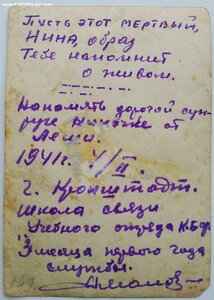 Пусть этот мертвый,
Нина, образ
Тебе напомнит
о живом.
На память дорогой суп-
руге Ниночке от
Лёши.
1941г. 4/II.
г. Кронштадт.
Школа связи
Учебного отряда КБФ.
3 месяца первого года
службы.